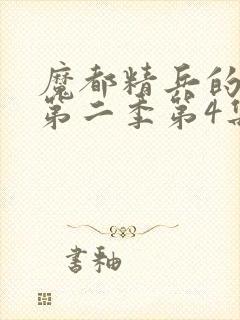 魔都精兵的
第二季第4集
書釉